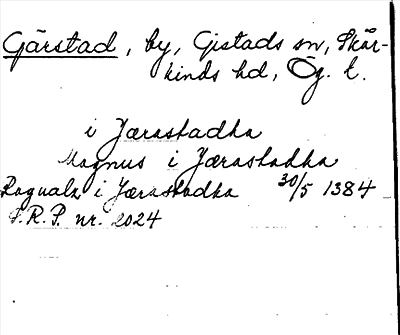 Gärstad, by, Gistads sn, Skär-
kinds hd, Ög. l.
i Jærastadha
Magnus i Jærastadha
Ragualz i Jærastadha 30/5 1384
S.R.P. nr. 2024